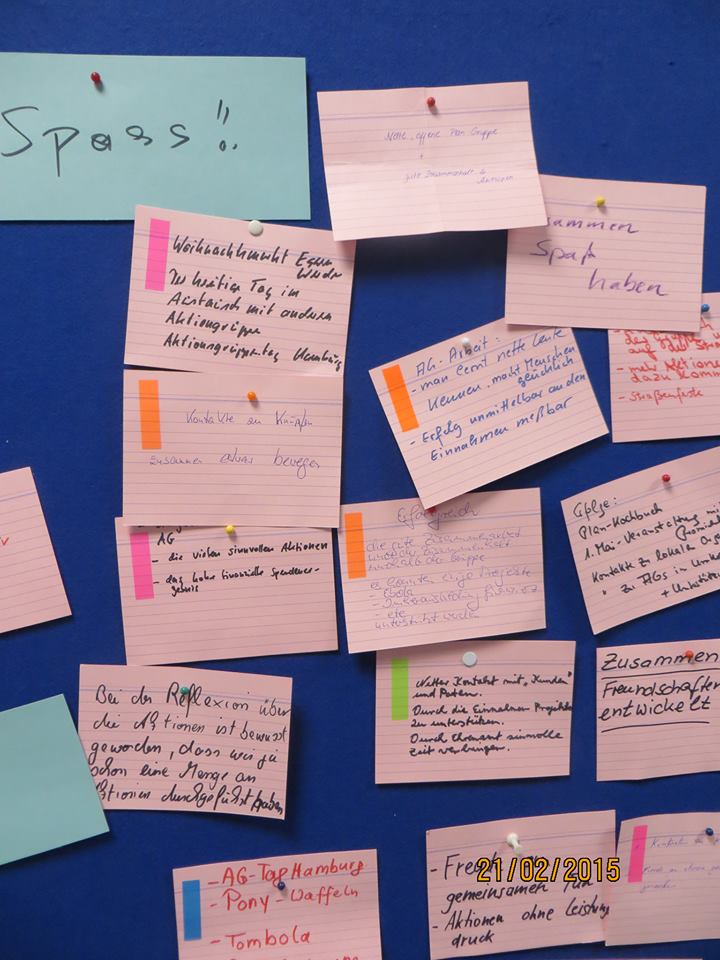 Spass!!
Nette, offene Plan Gruppe
+
gute Zusammenhalt &
Aktionen
sammen
Spaß
haben
Weihnachtsmarkt Essen
Der heutige Tag im
Austausch mit anderen
Aktionsgruppe
Aktionsgruppentag Hamburg
AG-Arbeit:
- man lernt nette Leute
Kennen, macht Menschen
glücklich
- Erfolg unmittelbar an den
Einnahmen meßbar
- mehr Aktione
dazu komm
- Straßenfeste
Kontakte zu Knüpfen
zusammen etwas bewegen
AG
- die vielen sinnvollen Aktionen
- das hohe finanzielle Spendener-
gebnis
Erfolgreich
die gute Zusammenarbeit
und der Zusammenhalt
innerhalb der Gruppe
es konnten einige Projekte
- Ebola
- etc
unterstützt werden
Erfolge:
Plan-Kochbuch
1. Mai-Veranstaltung mit
Kontakte zu lokalen
" zu AGs in
+ Unterstü
Bei der Reflexion über
die Aktionen ist bewusst
geworden, dass wir ja
schon eine Menge an
Aktionen durchgeführt haben
Netter Kontakt mit „Kunden“
und Paten.
Durch die Einnahmen Projekte
zu unterstützen.
Durch Ehrenamt sinnvolle
Zeit verbringen.
Zusammen
Freundschaften
entwickelt
- AG-Tag Hamburg
- Pony-Waffeln
- Tombola
- Freu
gemeinsamen Tun
- Aktionen ohne Leistung
druck
21/02/2015